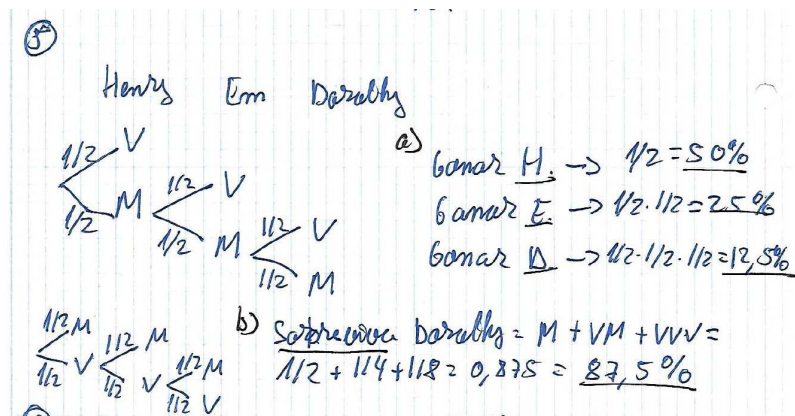 3º
Henry Em Dorothy
1/2 V
1/2 M 1/2 V
1/2 M 1/2 V
1/2 M
a) Ganar H. → 1/2 = 50%
Ganar E. → 1/2·1/2 = 25%
Ganar D. → 1/2·1/2·1/2 = 12,5%
1/2 M
1/2 V 1/2 M
1/2 V 1/2 M
1/2 V
b) Sobrevive Dorothy = M + VM + VVV =
1/2 + 1/4 + 1/8 = 0,875 = 87,5%